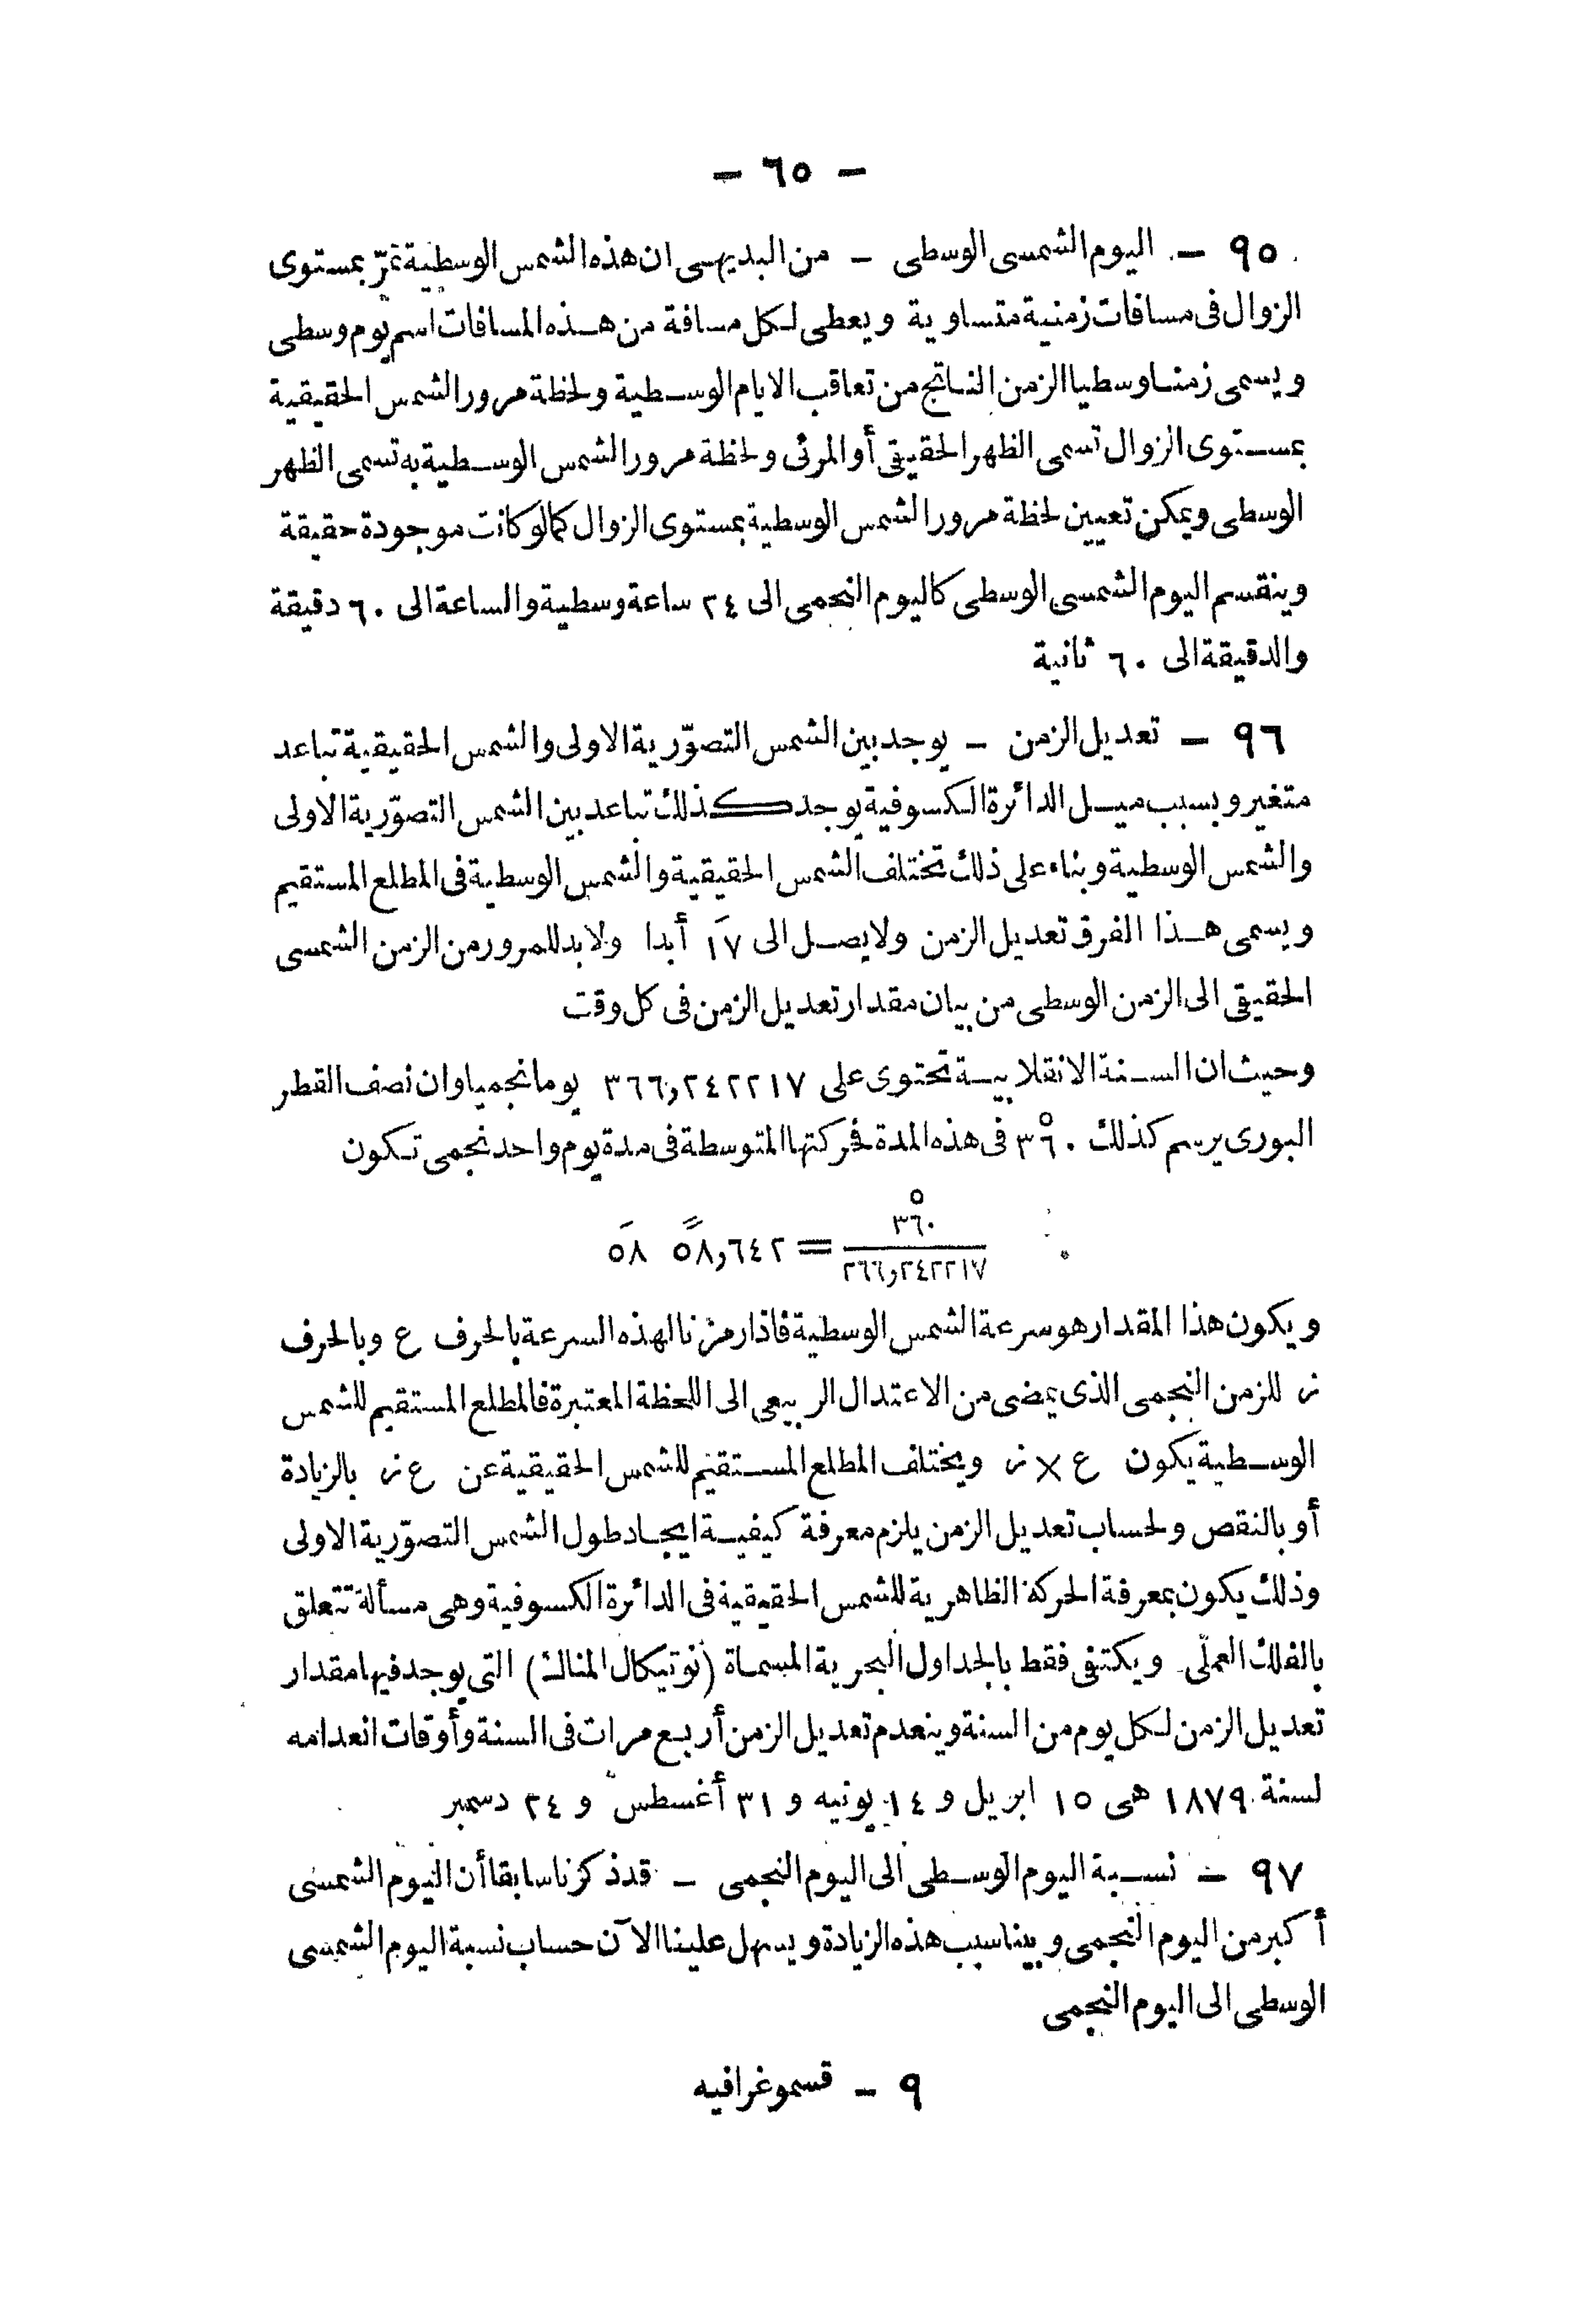 — ٦٥ —
٩٥ — اليوم الشمسى الوسطى — من البديهى ان هذه الشمس الوسطية تمرّ بمستوى
الزوال فى مسافات زمنية متساوية ويعطى لكل مسافة من هذه المسافات اسم يوم وسطى
ويسمى زمنا وسطيا الزمن الناتج من تعاقب الايام الوسطية ولحظة مرور الشمس الحقيقية
بمستوى الزوال تسمى الظهر الحقيقى أو المرئى ولحظة مرور الشمس الوسطية به تسمى الظهر
الوسطى ويمكن تعيين لحظة مرور الشمس الوسطية بمستوى الزوال كما لو كانت موجودة حقيقة
وينقسم اليوم الشمسى الوسطى كاليوم النجمى الى ٢٤ ساعة وسطية والساعة الى ٦٠ دقيقة
والدقيقة الى ٦٠ ثانية
٩٦ — تعديل الزمن — يوجد بين الشمس التصوّرية الاولى والشمس الحقيقية تباعد
متغير وبسبب ميل الدائرة الكسوفية يوجد كذلك تباعد بين الشمس التصوّرية الاولى
والشمس الوسطية وبناء على ذلك تختلف الشمس الحقيقية والشمس الوسطية فى المطلع المستقيم
ويسمى هذا الفرق تعديل الزمن ولا يصل الى ١٧َ أبدا ولا بد للمرور من الزمن الشمسى
الحقيقى الى الزمن الوسطى من بيان مقدار تعديل الزمن فى كل وقت
وحيث ان السنة الانقلابية تحتوى على ٣٦٦,٢٤٢٢١٧ يوما نجميا وان نصف القطر
البورى يرسم كذلك ٣٦٠° فى هذه المدة فحركتها المتوسطة فى مدة يوم واحد نجمى تكون
٣٦٠° / ٢٦٦,٢٤٢٢١٧ = ٥٨,٦٤٢″ ٥٨′
ويكون هذا المقدار هو سرعة الشمس الوسطية فاذا رمزنا لهذه السرعة بالحرف ع وبالحرف
ز للزمن النجمى الذى يمضى من الاعتدال الربيعى الى اللحظة المعتبرة فالمطلع المستقيم للشمس
الوسطية يكون ع × ز ويختلف المطلع المستقيم للشمس الحقيقية عن ع ز بالزيادة
أو بالنقص ولحساب تعديل الزمن يلزم معرفة كيفية ايجاد طول الشمس التصوّرية الاولى
وذلك يكون بمعرفة الحركة الظاهرية للشمس الحقيقية فى الدائرة الكسوفية وهى مسألة تتعلق
بالفلك العملى ويكتفى فقط بالجداول البحرية المسماة (نوتيكال المناك) التى يوجد فيها مقدار
تعديل الزمن لكل يوم من السنة وينعدم تعديل الزمن أربع مرات فى السنة وأوقات انعدامه
لسنة ١٨٧٩ هى ١٥ ابريل و ١٤ يونيه و ٣١ أغسطس و ٢٤ دسمبر
٩٧ — نسبة اليوم الوسطى الى اليوم النجمى — قد ذكرنا سابقا أن اليوم الشمسى
أكبر من اليوم النجمى وبينا سبب هذه الزيادة ويسهل علينا الآن حساب نسبة اليوم الشمسى
الوسطى الى اليوم النجمى
٩ — قسموغرافيه